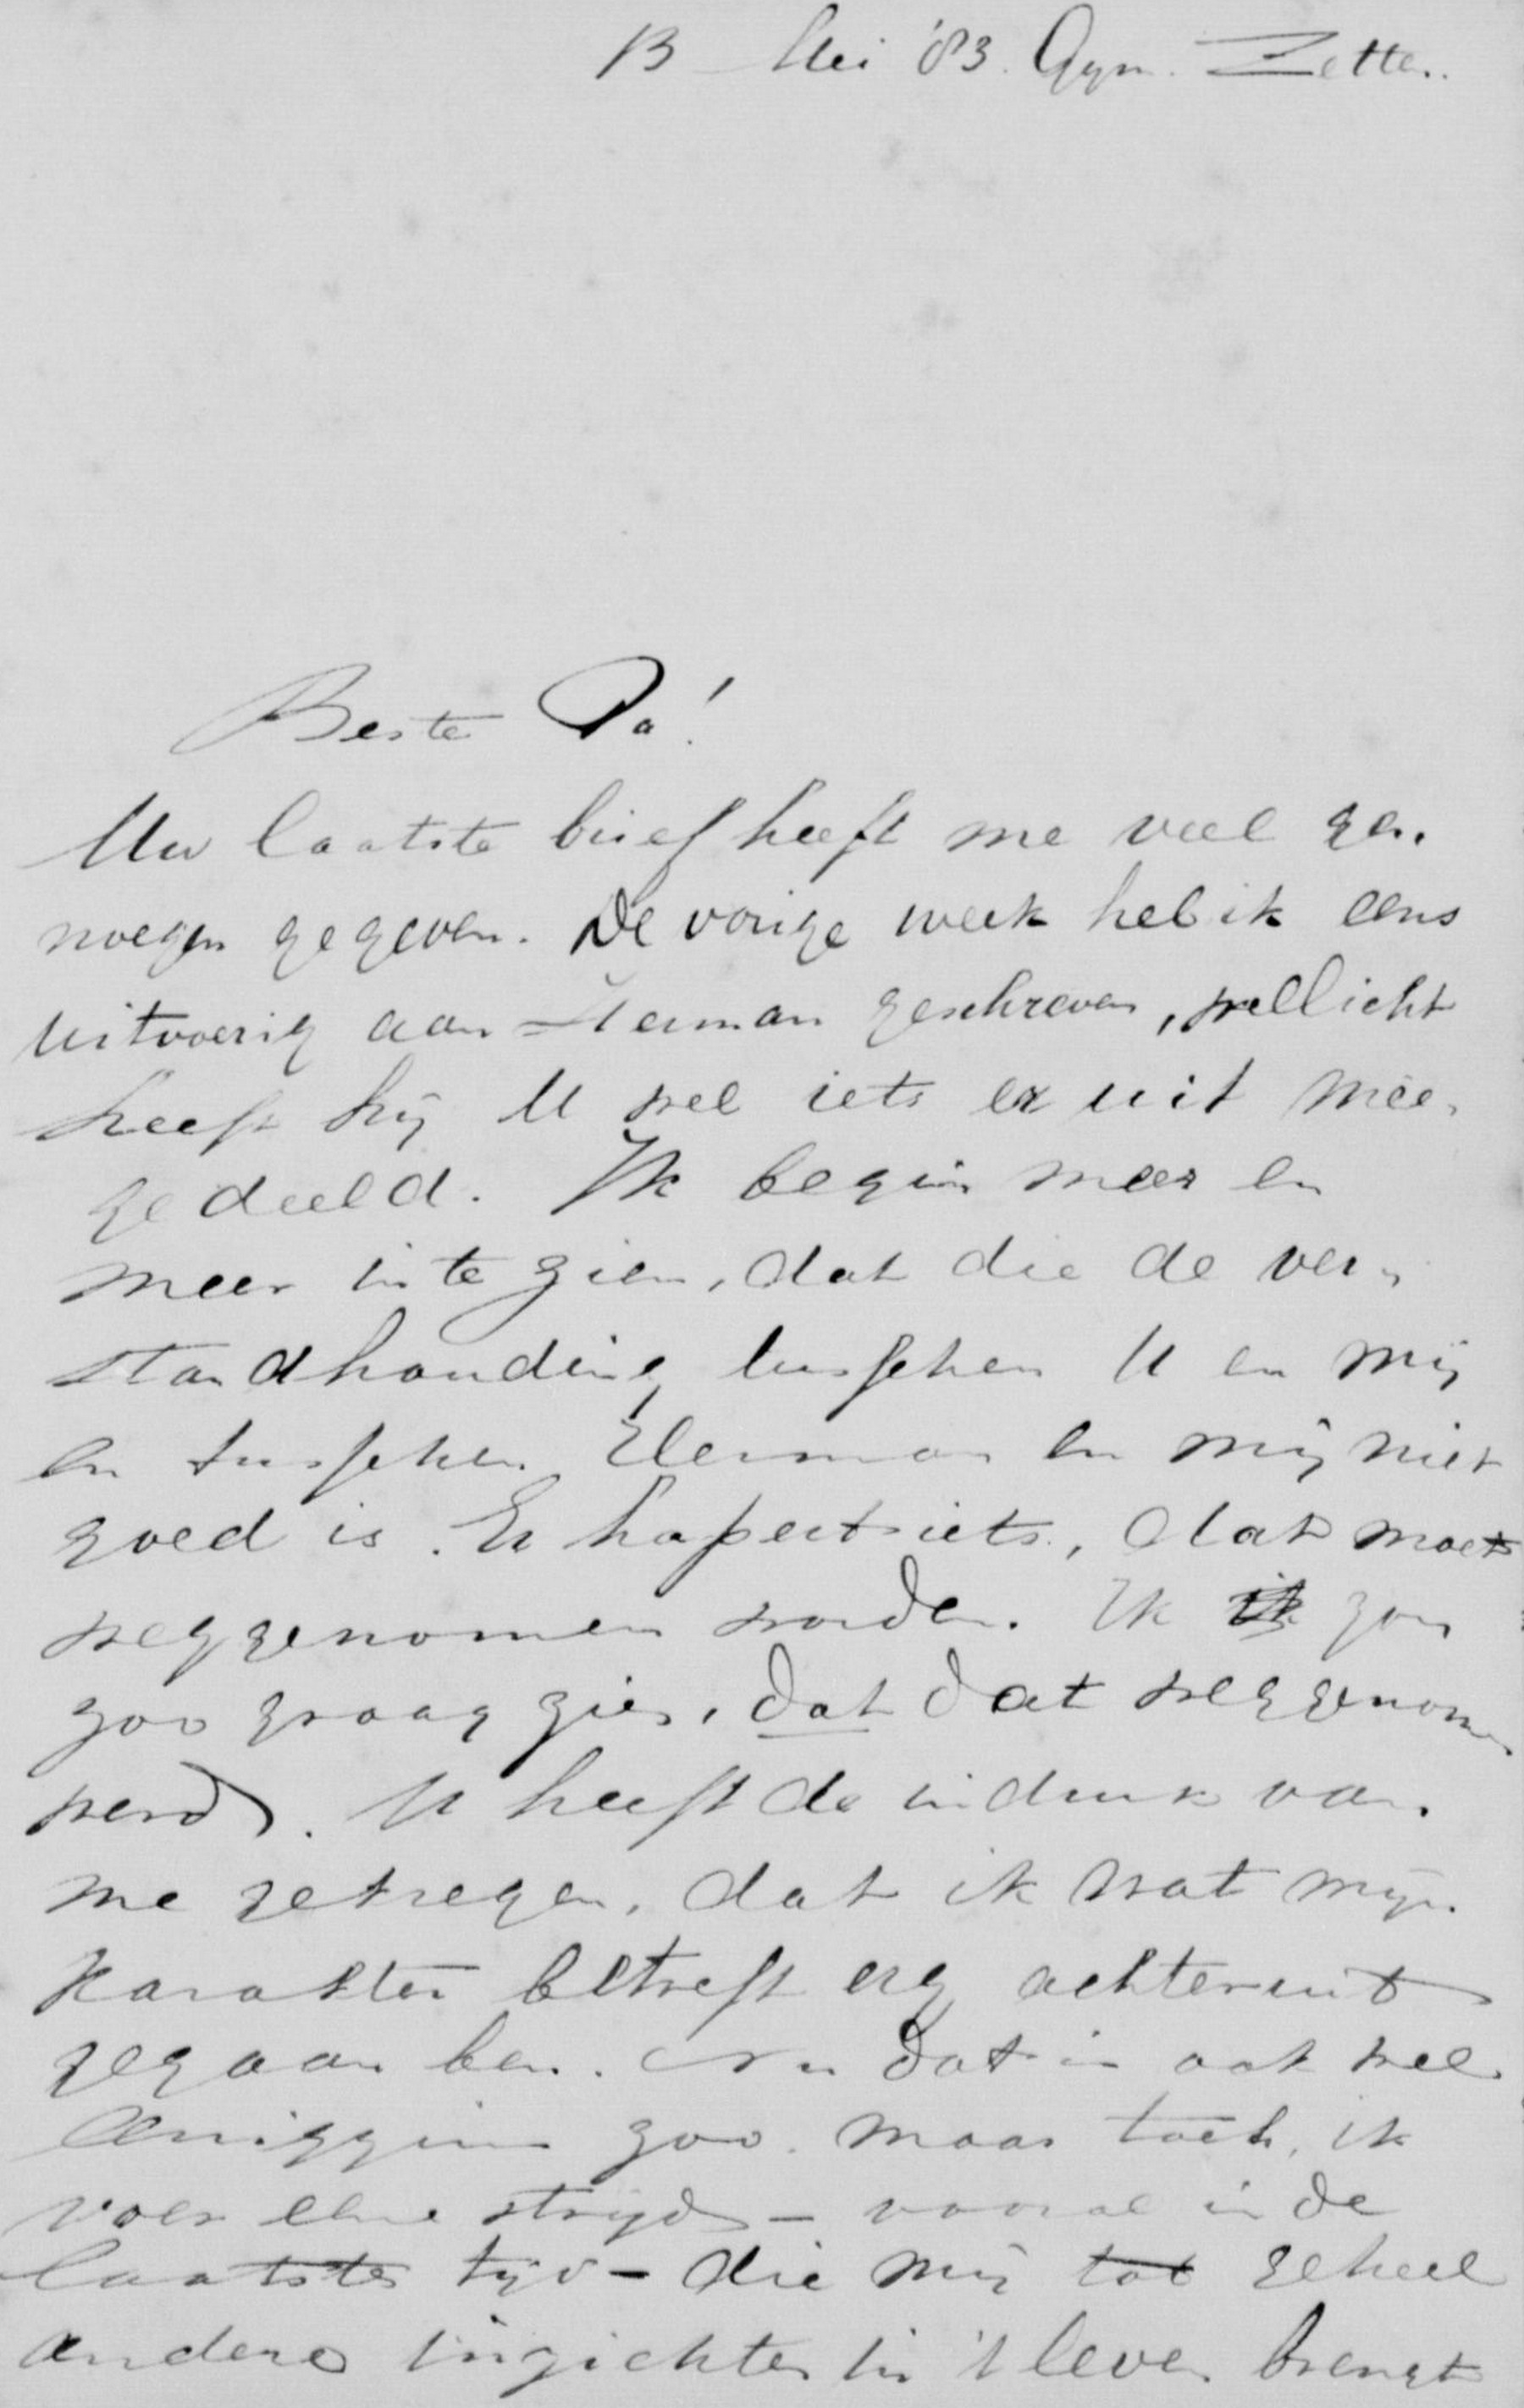 13 Mei '83. Gym. Zetten.
Beste Pa!
Uw laatste brief heeft me veel ge-
noegen gegeven. De vorige week heb ik eens
uitvoerig aan Herman geschreven, wellicht
heeft hij U wel iets er uit mee-
gedeeld. Ik begin meer en
meer in te zien, dat die de ver-
standhouding tusschen U en mij
en tusschen Herman en mij niet
goed is. Er hapert iets, dat moet
weggenomen worden. Ik ik zou
zoo graag zien, dat dat weggenomen
werd. U heeft de indruk van
me gekregen, dat ik wat mijn
karakter betreft erg achteruit
gegaan ben. Nu dat is ook wel
eenigzins zoo. maar toch, ik
voer eene strijd - vooral in de
laatste tijd - die mij tot geheel
andere inzichten in 't leven brengt